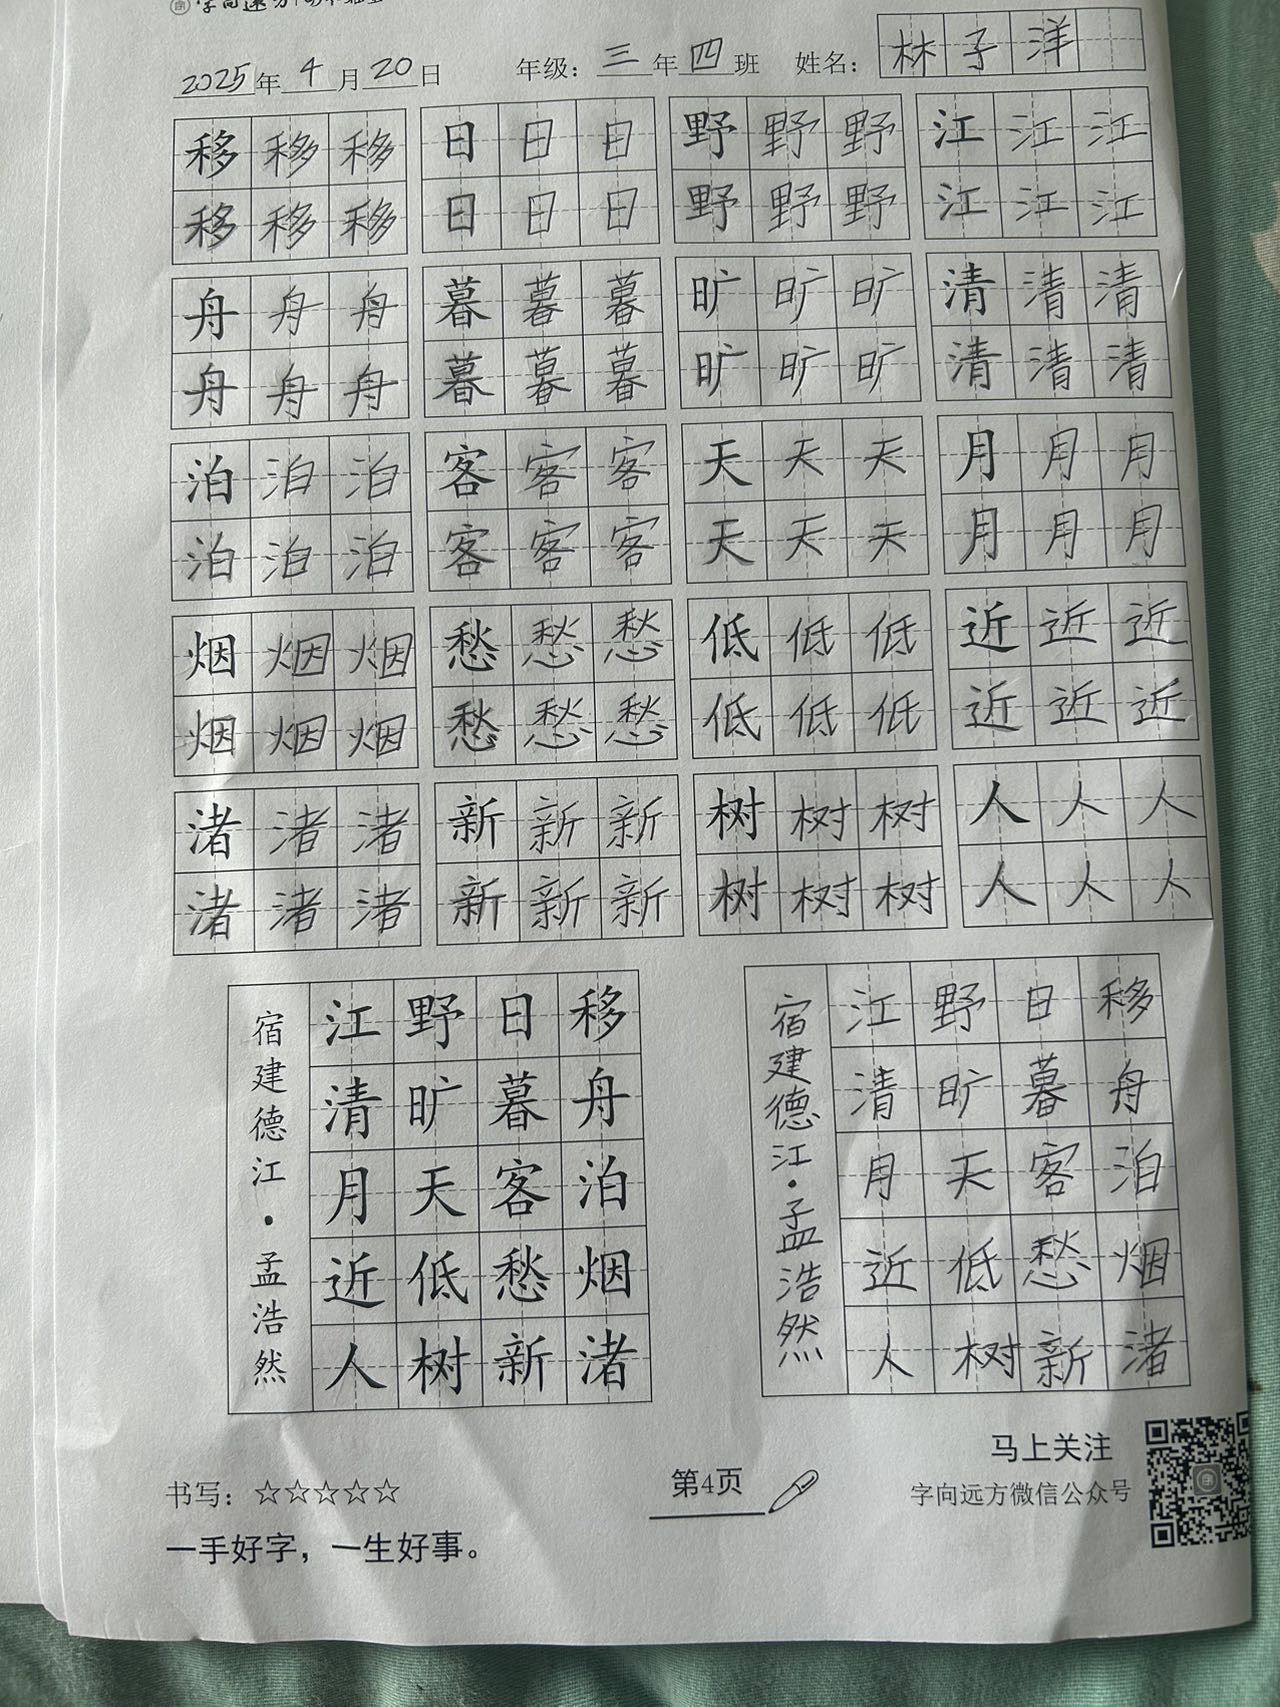 2025年4月20日 年级：三年四班 姓名：林子洋
移移移 日日日 野野野 江江江
移移移 日日日 野野野 江江江
舟舟舟 暮暮暮 旷旷旷 清清清
舟舟舟 暮暮暮 旷旷旷 清清清
泊泊泊 客客客 天天天 月月月
泊泊泊 客客客 天天天 月月月
烟烟烟 愁愁愁 低低低 近近近
烟烟烟 愁愁愁 低低低 近近近
渚渚渚 新新新 树树树 人人人
渚渚渚 新新新 树树树 人人人
移舟泊烟渚
日暮客愁新
野旷天低树
江清月近人
宿建德江·孟浩然
移舟泊烟渚
日暮客愁新
野旷天低树
江清月近人
宿建德江·孟浩然
书写：☆☆☆☆☆
一手好字，一生好事。
第4页
马上关注
字向远方微信公众号